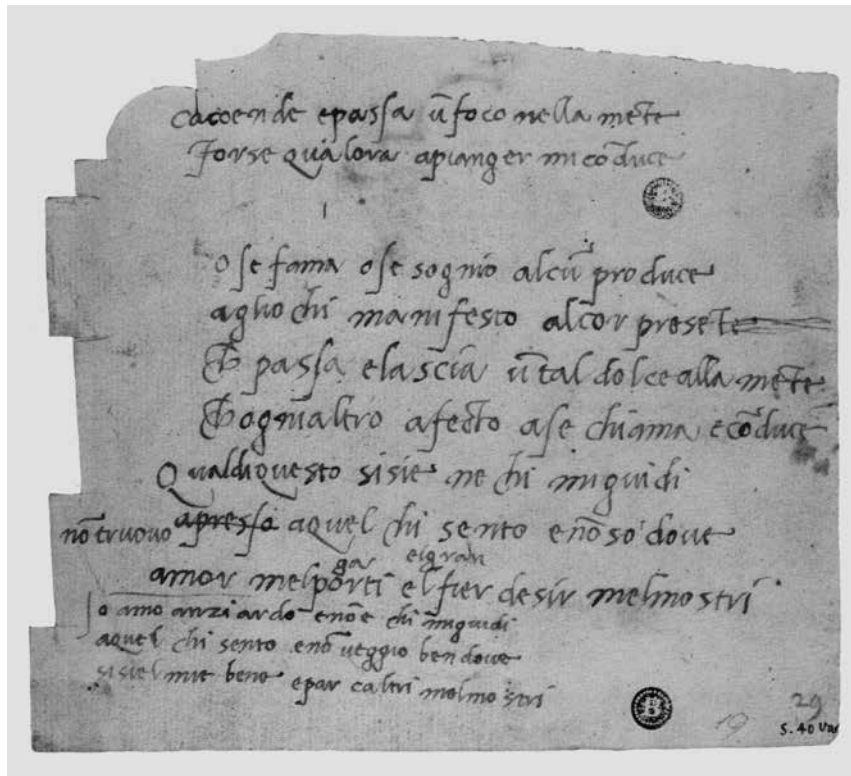 cacende e passa ū foco nella mēte
Forse qualora apianger mi cōduce
|
o se fama o se sognio alcū produce
aglio chi manifesto alcor presēte
E passa e lascia ū tal dolce alla mēte
E ognialtro afecto a se chiama e cōduce
Qual di questo si sie ne chi mi guidi
nō truovo apresso a quel chi sento e nō so dove
gar ei gran
amor mel porti el fier desir mel mostri
Io amo anzi ardo e nōe chi mi guidi
a quel chi sento e nō veggio ben dove
si sie l mie bene e par caltri mel mostri
29
19
S. 40 Var